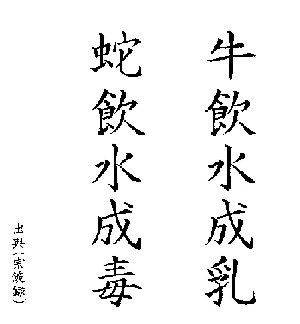 牛飲水成乳
蛇飲水成毒
出典(宗鏡錄)